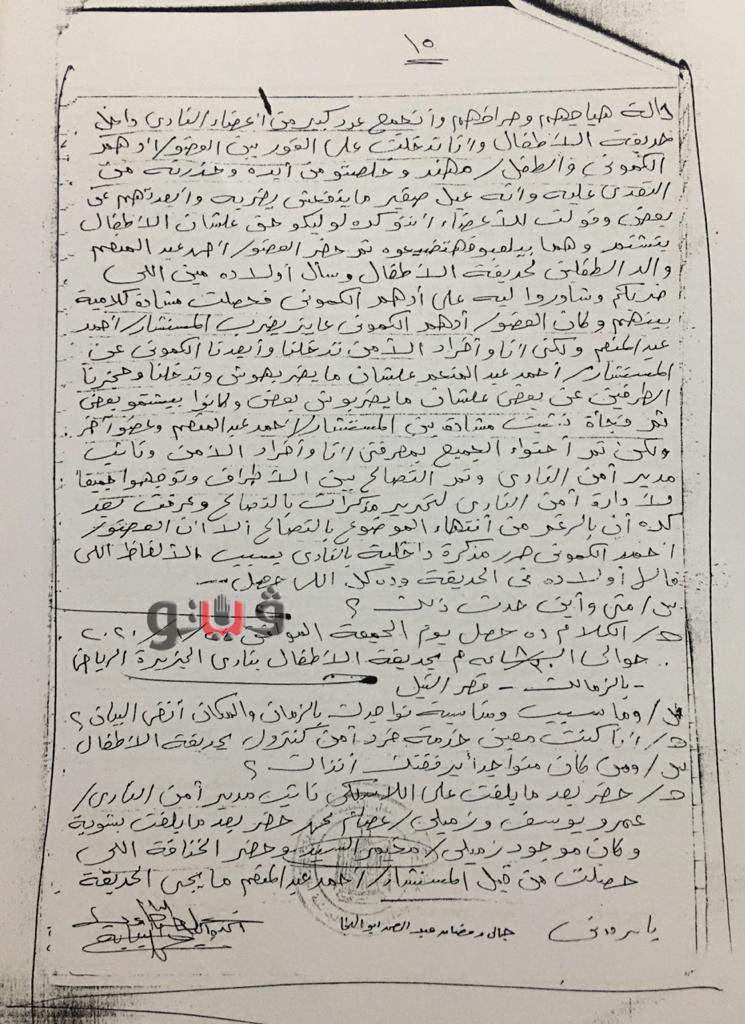 ١٥
حالة هياجهم وصراخهم وأتجمع عدد كبير من أعضاء النادي داخل
حديقة الأطفال وأنا تدخلت على الفور بين العضو/ أدهم
الكموني والطفل/ مهند وخلصتو من أيده وحذرته من
التعدي عليه وانه عيل صغير ما ينفعش يضربه وأبعدتهم عن
بعض وقولت للأعضاء انتو كده لوليكو حق علشان الأطفال
بتشتم وهما بيلعبو فهتضيعوه ثم حضر العضو/ احمد عبد المنعم
والد الطفلتين لحديقة الأطفال وسأل أولاده مين اللي
ضربكم وشاوروا ليه على أدهم الكموني فحصلت مشادة كلامية
بينهم وكان العضو/ أدهم الكموني عايز يضرب المستشار/ احمد
عبد المنعم ولكن انا وأفراد الأمن تدخلنا وأبعدنا الكموني عن
المستشار/ أحمد عبد المنعم علشان ما يضربهوش وتدخلنا وحجزنا
الطرفين عن بعض علشان ما يضربوش بعض وكانوا بيشتمو بعض
ثم فجأة نشبت مشادة بين المستشار/ احمد عبد المنعم وعضو آخر
ولكن تم أحتواء الجميع بمعرفتي انا وأفراد الأمن ونائب
مدير أمن النادي وتم التصالح بين الأطراف وتوجهوا جميعاً
لأدارة أمن النادي لتحرير مذكرات بالتصالح وعرفت بعد
كده أن بالرغم من أنتهاء الموضوع بالتصالح ألا ان العضو/
احمد الكموني حرر مذكرة داخلية بالنادي بسبب الألفاظ اللي
قالها أولاده في الحديقة وده كل اللي حصل
س/ متى وأين حدث ذلك ؟
ج/ الكلام ده حصل يوم الجمعة الموافق ٢٠٢٠
حوالي الساعة ٨ م بحديقة الأطفال بنادي الجزيرة الرياضي
- بالزمالك - قصر النيل
س/ وما سبب ومناسبة تواجدك بالزمان والمكان أنفي البيان ؟
ج/ انا كنت معين خدمة فرد أمن كنترول بحديقة الأطفال
س/ ومن كان متواجداً برفقتك أنذاك ؟
ج/ حضر بعد ما بلغت على اللاسلكي نائب مدير أمن النادي/
عمرو يوسف وزميلي/ عصام محمد حضر بعد ما بلغت بشوية
وكان موجود زميلي/ السيد وحضر الخناقة اللي
حصلت من قبل المستشار/ احمد عبد المنعم ما يجي الحديقة
جمال رمضان عبد الصمد
ڤيتو